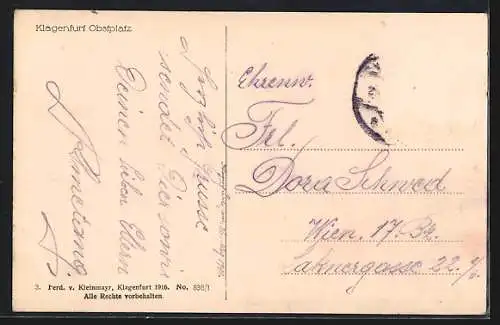 Klagenfurt Obstplatz
Herzlichste Grüsse
sendet Dir sowie
Deinen lieben Eltern
Ehrenw.
Frl.
Dora Schwed
Wien. 17. Bz.
Lacknergasse 22.
3. Ferd. v. Kleinmayr, Klagenfurt 1916. No. 838/1
Alle Rechte vorbehalten.